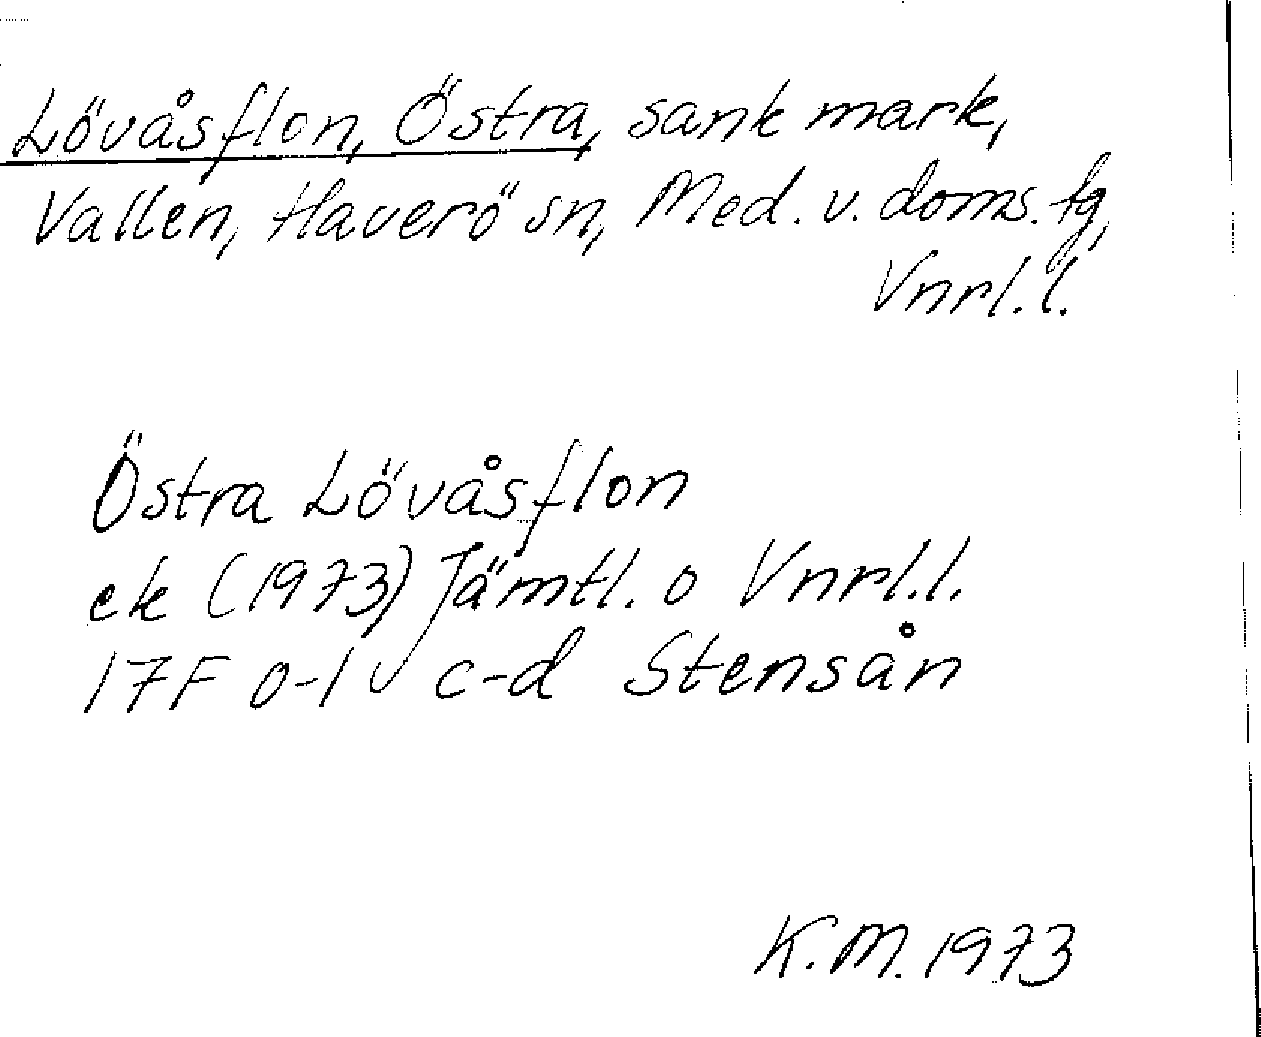 Lövåsflon, Östra, sank mark,
Vallen, Haverö sn, Med. v. doms. fg,
Vnrl.l.
Östra Lövåsflon
ek (1973) Jämtl. o Vnrl.l.
17F 0-1 c-d Stensån
K.M. 1973